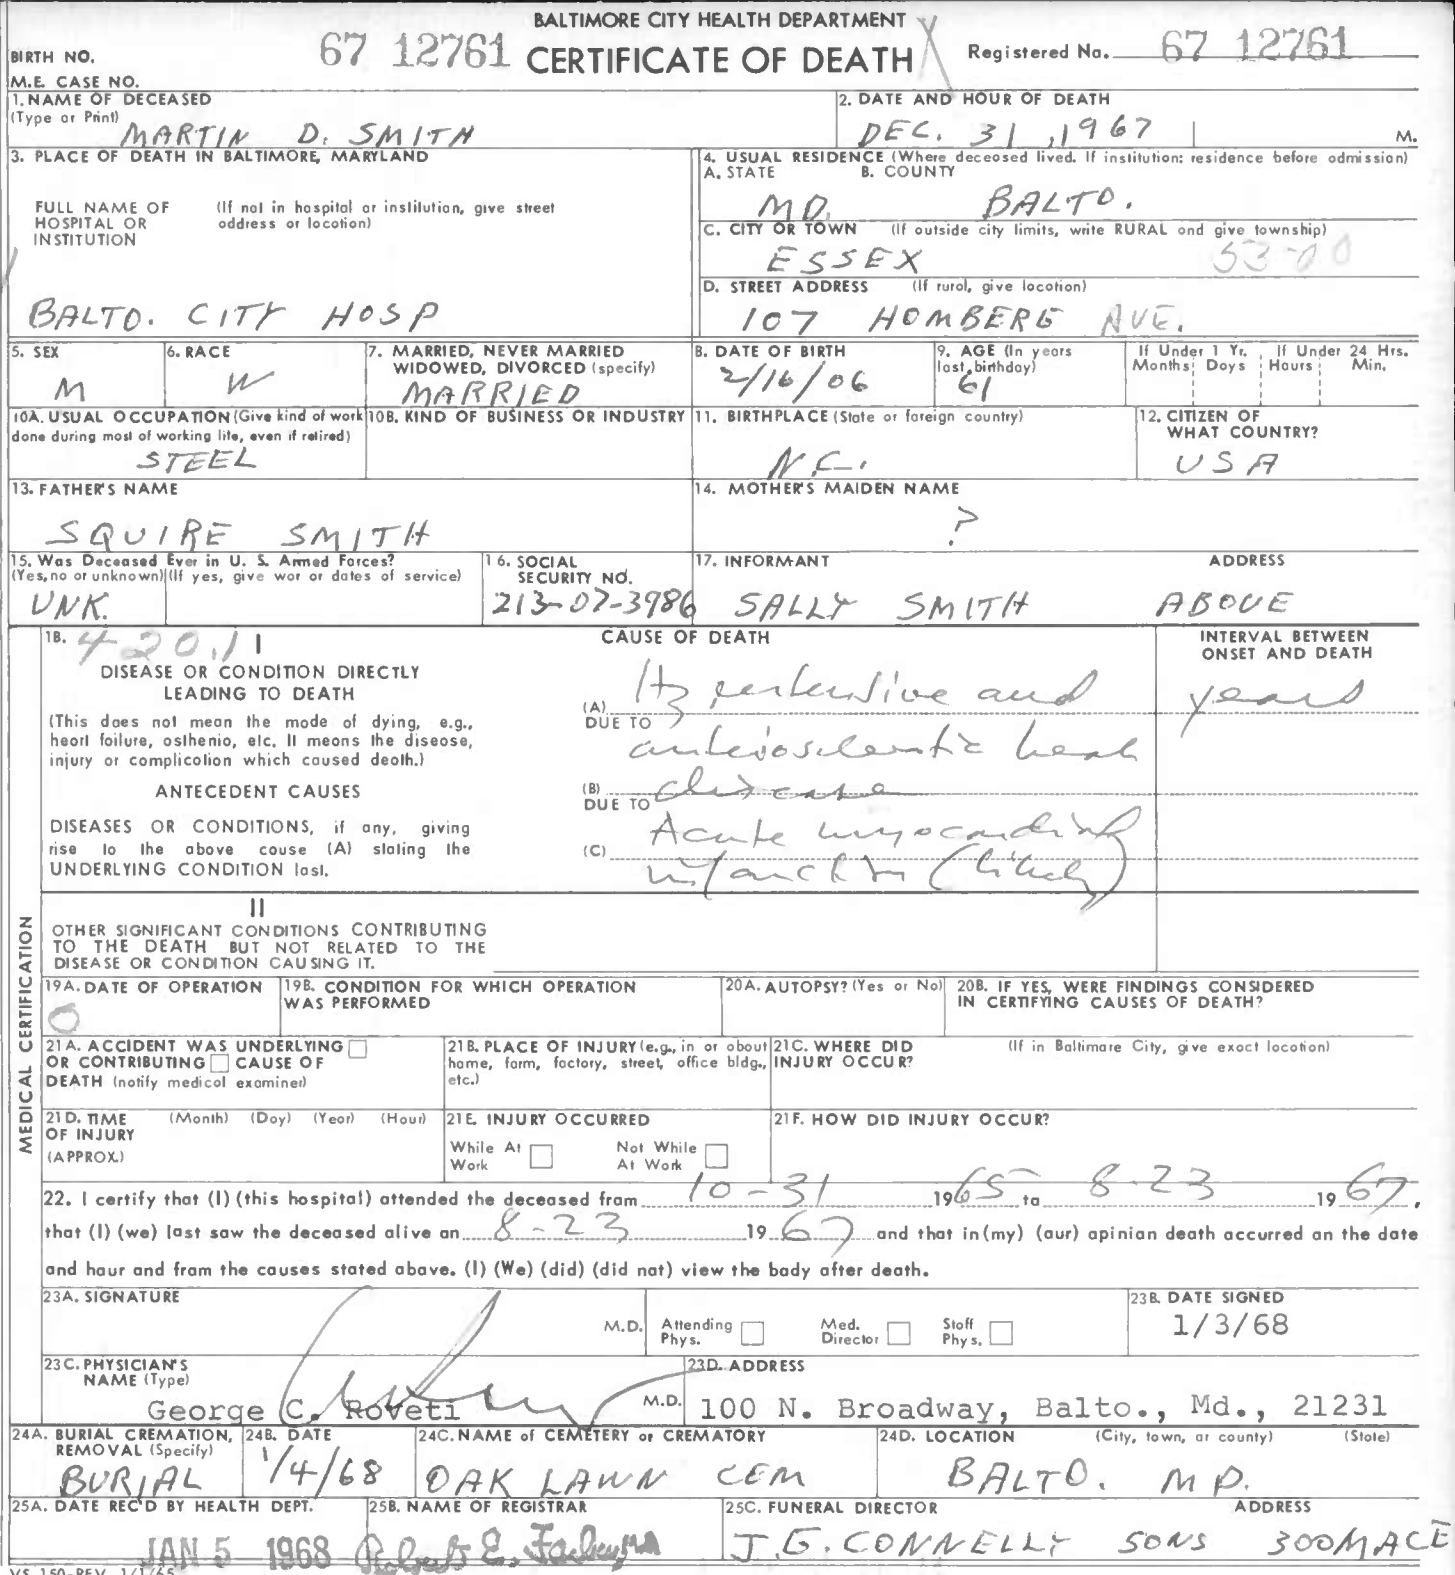 BALTIMORE CITY HEALTH DEPARTMENT
BIRTH NO. 67 12761 CERTIFICATE OF DEATH Registered No. 67 12761
M.E. CASE NO.
1. NAME OF DECEASED (Type or Print) MARTIN D. SMITH
2. DATE AND HOUR OF DEATH DEC. 31, 1967 M.
3. PLACE OF DEATH IN BALTIMORE, MARYLAND
FULL NAME OF HOSPITAL OR INSTITUTION (If not in hospital or institution, give street address or location)
BALTO. CITY HOSP
4. USUAL RESIDENCE (Where deceased lived. If institution: residence before admission)
A. STATE B. COUNTY
MD. BALTO.
C. CITY OR TOWN (If outside city limits, write RURAL and give township)
ESSEX 53-00
D. STREET ADDRESS (If rural, give location)
107 HOMBERG AVE.
5. SEX M
6. RACE W
7. MARRIED, NEVER MARRIED WIDOWED, DIVORCED (specify) MARRIED
8. DATE OF BIRTH 2/16/06
9. AGE (In years last birthday) 61
If Under 1 Yr. Months Days If Under 24 Hrs. Hours Min.
10A. USUAL OCCUPATION (Give kind of work done during most of working life, even if retired) STEEL
10B. KIND OF BUSINESS OR INDUSTRY
11. BIRTHPLACE (State or foreign country) N.C.
12. CITIZEN OF WHAT COUNTRY? USA
13. FATHER'S NAME SQUIRE SMITH
14. MOTHER'S MAIDEN NAME ?
15. Was Deceased Ever in U. S. Armed Forces? (Yes, no or unknown) (If yes, give war or dates of service) UNK.
16. SOCIAL SECURITY NO. 213-07-3986
17. INFORMANT ADDRESS
SALLY SMITH ABOVE
MEDICAL CERTIFICATION
18. 420.1 I CAUSE OF DEATH INTERVAL BETWEEN ONSET AND DEATH
DISEASE OR CONDITION DIRECTLY LEADING TO DEATH
(This does not mean the mode of dying, e.g., heart failure, asthenia, etc. It means the disease, injury or complication which caused death.)
ANTECEDENT CAUSES
DISEASES OR CONDITIONS, if any, giving rise to the above cause (A) stating the UNDERLYING CONDITION last.
(A) Hypertensive and years
DUE TO arteriosclerotic heart
(B) disease
DUE TO Acute myocardial
(C) infarction (likely)
II
OTHER SIGNIFICANT CONDITIONS CONTRIBUTING TO THE DEATH BUT NOT RELATED TO THE DISEASE OR CONDITION CAUSING IT.
19A. DATE OF OPERATION 0
19B. CONDITION FOR WHICH OPERATION WAS PERFORMED
20A. AUTOPSY? (Yes or No)
20B. IF YES, WERE FINDINGS CONSIDERED IN CERTIFYING CAUSES OF DEATH?
21A. ACCIDENT WAS UNDERLYING OR CONTRIBUTING CAUSE OF DEATH (notify medical examiner)
21B. PLACE OF INJURY (e.g., in or about home, farm, factory, street, office bldg., etc.)
21C. WHERE DID INJURY OCCUR? (If in Baltimore City, give exact location)
21D. TIME OF INJURY (APPROX.) (Month) (Day) (Year) (Hour)
21E. INJURY OCCURRED
While At Work Not While At Work
21F. HOW DID INJURY OCCUR?
22. I certify that (I) (this hospital) attended the deceased from 10-31 1965 to 8-23 1967,
that (I) (we) last saw the deceased alive on 8-23 1967 and that in (my) (our) opinion death occurred on the date
and hour and from the causes stated above. (I) (We) (did) (did not) view the body after death.
23A. SIGNATURE M.D.
Attending Phys. Med. Director Staff Phys.
23B. DATE SIGNED 1/3/68
23C. PHYSICIAN'S NAME (Type) George C. Roveti M.D.
23D. ADDRESS 100 N. Broadway, Balto., Md., 21231
24A. BURIAL CREMATION, REMOVAL (Specify) BURIAL
24B. DATE 1/4/68
24C. NAME of CEMETERY or CREMATORY OAK LAWN CEM
24D. LOCATION (City, town, or county) (State) BALTO. MD.
25A. DATE REC'D BY HEALTH DEPT. JAN 5 1968
25B. NAME OF REGISTRAR Robert E. Farber, MD
25C. FUNERAL DIRECTOR ADDRESS
J.G. CONNELLY SONS 300 MACE
VS 150-REV. 1/1/65